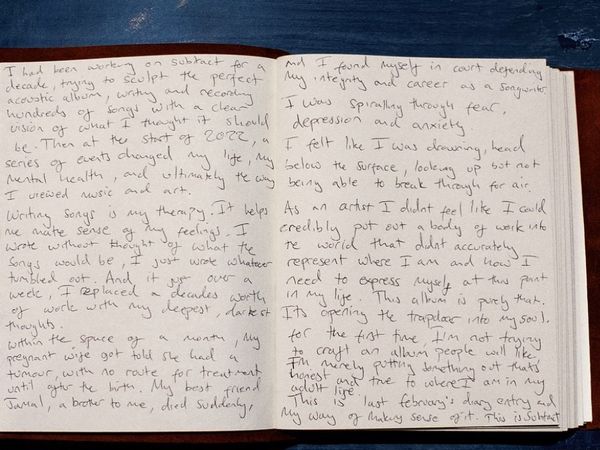 I had been working on subtract for a
decade, trying to sculpt the perfect
acoustic album, writing and recording
hundreds of songs with a clear
vision of what I thought it should
be. Then at the start of 2022, a
series of events changed my life, my
mental health, and ultimately the way
I viewed music and art.
Writing songs is my therapy. It helps
me make sense of my feelings. I
wrote without thought of what the
songs would be, I just wrote whatever
tumbled out. And in just over a
week, I replaced a decades worth
of work with my deepest, darkest
thoughts.
Within the space of a month, my
pregnant wife got told she had a
tumour, with no route for treatment
until after the birth. My best friend
Jamal, a brother to me, died suddenly,
and I found myself in court defending
my integrity and career as a songwriter.
I was spiralling through fear,
depression and anxiety.
I felt like I was drowning, head
below the surface, looking up but not
being able to break through for air.
As an artist I didnt feel like I could
credibly put out a body of work into
the world that didnt accurately
represent where I am and how I
need to express myself at this point
in my life. This album is purely that.
Its opening the trapdoor into my soul.
for the first time, I'm not trying
to craft an album people will like,
I'm merely putting something out thats
honest and true to where I am in my
adult life.
This is last february's diary entry and
my way of making sense of it. This is Subtract